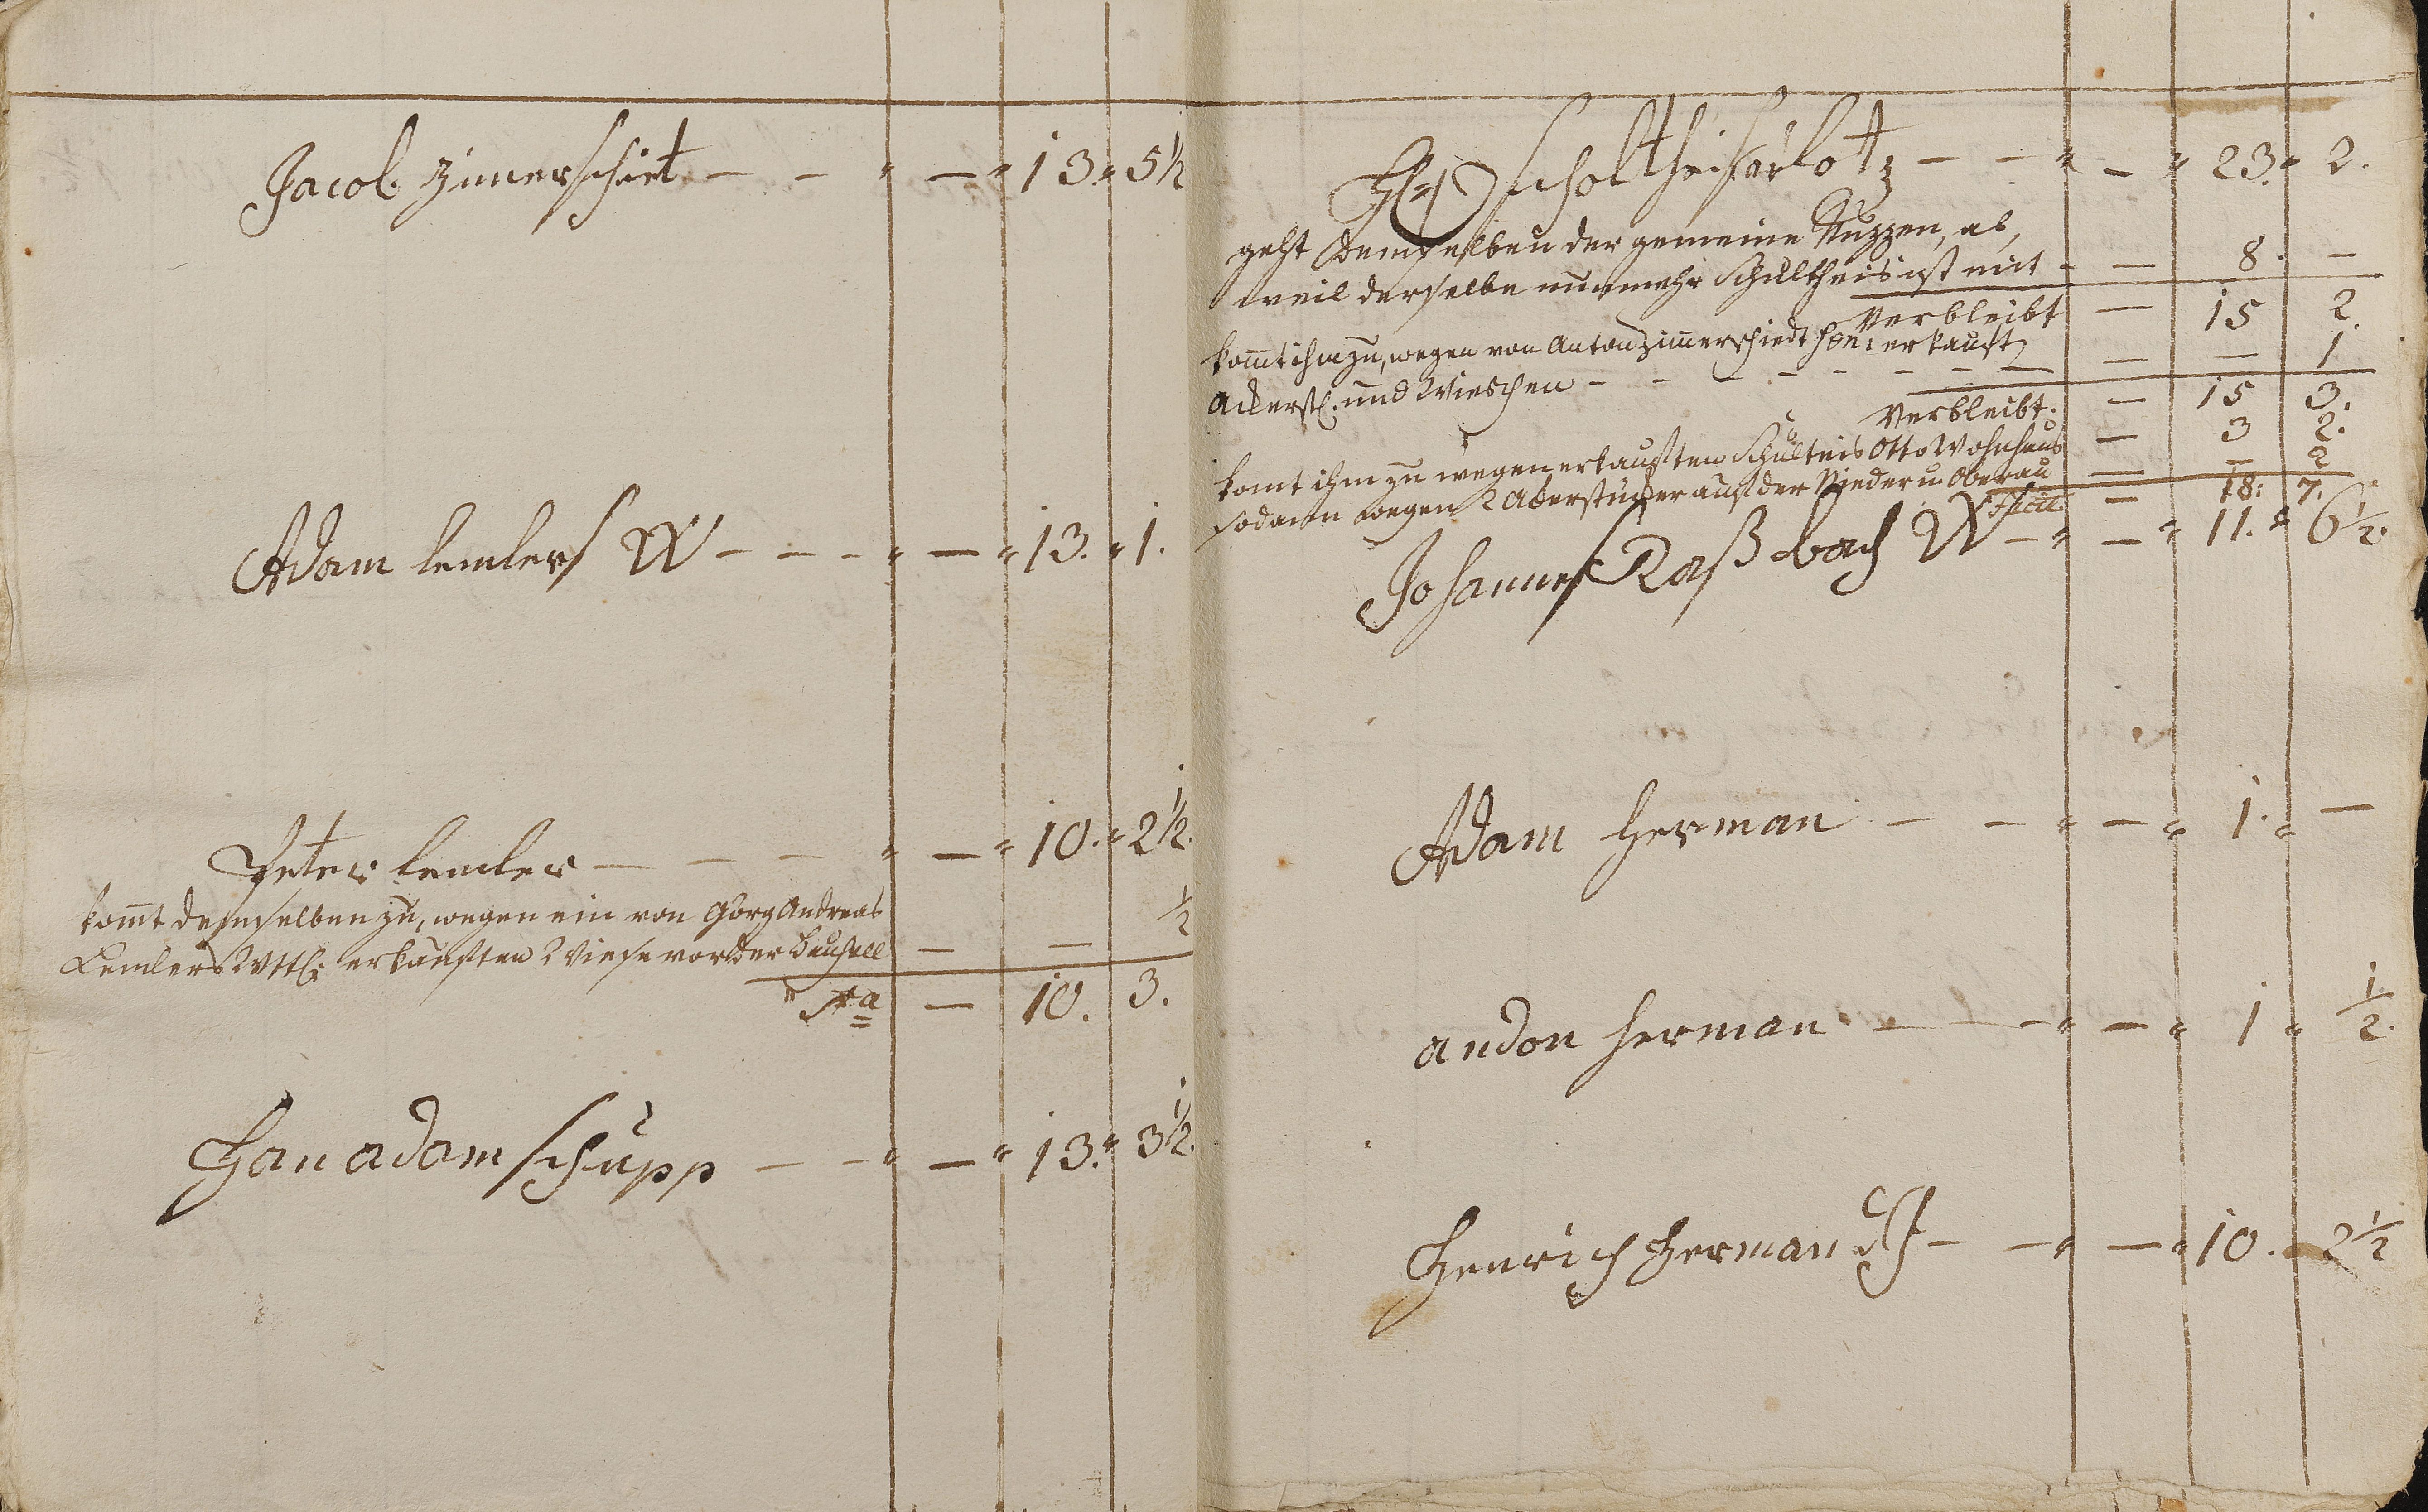 Jacob Zimerschiet — — " — " 13. " 5½
Adam lemlers W — — — " — " 13. " 1.
Peter lemler — — — " — " 10. " 2½.
kom̄t demselben zu, wegen ein von Görg Andreas ½
Lemlers Wttb: erkauften Wiese vor der — —
Sa — 10. 3.
Han adam schupp — — " — " 13. " 3½.
Hr scholtheis lotz — — " — " 23. " 2.
geht demselben der gemeine Nuzzen, ab,
weil derselbe nunmehr Schultheis ist mit — — 8. —
Verbleibt — 15 2.
kom̄t ihm zu, wegen von Anton Zim̄erschiedt sen: erkauft
Ackerst. und Wieschen — — — — — — — — — 1
Verbleibt. — 15 3.
komt ihm zu wegen erkauften Schulteis Otto Wohnhaus — 3 2.
sodann wegen 2 Ackerstücker auf der Nieder u. Oberau — — 2
Facit — 18: 7.
Johannes Raßbach W — " — " 11. " 6½.
Adam Herman — — " — " 1. " —
andon Herman — — " — " 1 " ½.
Henrich Herman — — " — " 10. 2½